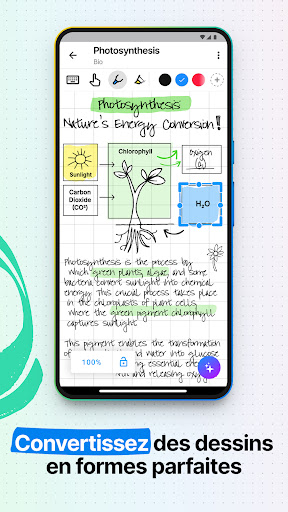 Photosynthesis
Bio
Photosynthesis
Nature's Energy Conversion!
Chlorophyll
Sunlight
Oxygen
Carbon
Dioxide
(CO²)
H₂O
Photosynthesis is the process by
which green plants, algae, and some
bacteria convert sunlight into chemical
energy. This crucial process takes place
in the chloroplasts of plant cells,
where the green pigment chlorophyll
captures sunlight
This pigment enables the transformation
of and water into glucose
essential
and releasing
100%
Convertissez des dessins
en formes parfaites